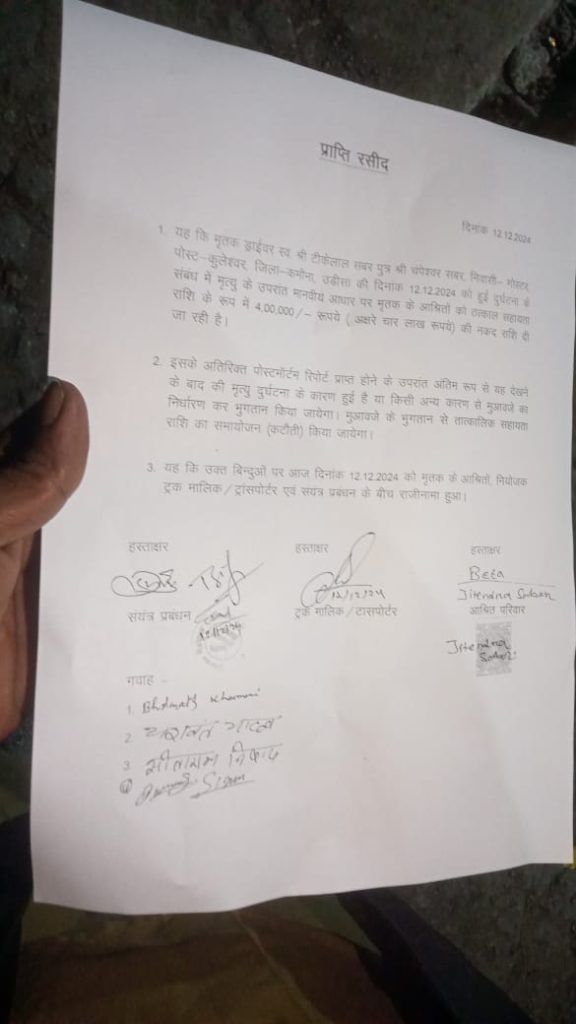 प्राप्ति रसीद
दिनांक 12.12.2024
1. यह कि मृतक ड्राईवर स्व श्री टीकेलाल सबर पुत्र श्री चंपेश्वर सबर, निवासी– मोस्टर,
पोस्ट–कुलेश्वर, जिला–कमोना, उडीसा की दिनांक 12.12.2024 को हुई दुर्घटना के
संबंध में मृत्यु के उपरांत मानवीय आधार पर मृतक के आश्रितों को तत्काल सहायता
राशि के रूप में 4,00,000/– रूपये ( अक्षरे चार लाख रूपये) की नकद राशि दी
जा रही है।
2. इसके अतिरिक्त पोस्टमॉर्टम रिपोर्ट प्राप्त होने के उपरांत अंतिम रूप से यह देखने
के बाद की मृत्यु दुर्घटना के कारण हुई है या किसी अन्य कारण से मुआवजे का
निर्धारण कर भुगतान किया जायेगा। मुआवजे के भुगतान से तात्कालिक सहायता
राशि का समायोजन (कटौती) किया जायेगा।
3. यह कि उक्त बिन्दुओं पर आज दिनांक 12.12.2024 को मृतक के आश्रितों, नियोजक
ट्रक मालिक/ट्रांसपोर्टर एवं संयत्र प्रबंधन के बीच राजीनामा हुआ।
हस्ताक्षर हस्ताक्षर हस्ताक्षर
Beta
12/12/24 Jitendra
संयत्र प्रबंधन ट्रक मालिक/टासपोर्टर आश्रित परिवार
Jitendra
गवाह –
1. Bholanath
2 यशवंत यादव
3 सीताराम निषाद
4